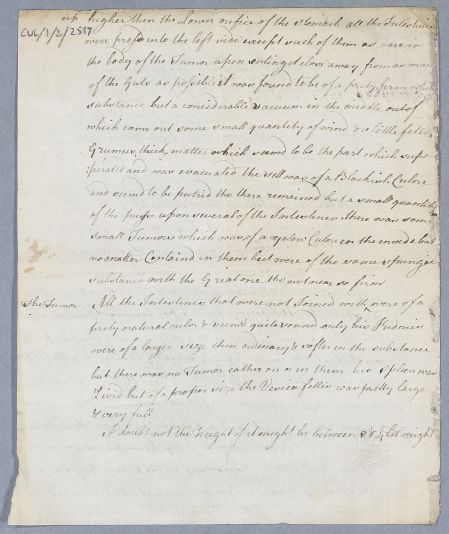 up higher then the Lower orifice of the stomach all the Intestines
CUL/1/2/2517
were press into the left side except such of them as were in
the body of the Tumor upon cuting it clove away from as many
of the Guts as possible it was found to be of a pretty firm
substance but a considerable vacuum in the middle out of
which came out some small quantity of wind & a little fetid
Grumus thick matter which seemd to be the part which supp
:perated and was evacuated the sell was of a Blackish Culore
and seemd to be putrid the there remained but a small quantity
of the puss upon several of the Intestines there was some
small Tumors which was of a yelow Culor in the inside but
no matter Containd in them but were of the same spungie
substance with the Great one tho not near so firm
The Tumor All the Intestines that were not Joined with were of a
prety natural color & seemd quite sound only his Kidnies
were of a larger size then ordinary & softer in the substance
but there was no Tumor eather on or in them his spleen was
Livid but of a proper size the Vesica fellis was pretty large
& very full
I doubt not the Weight of it might be between & lib weight